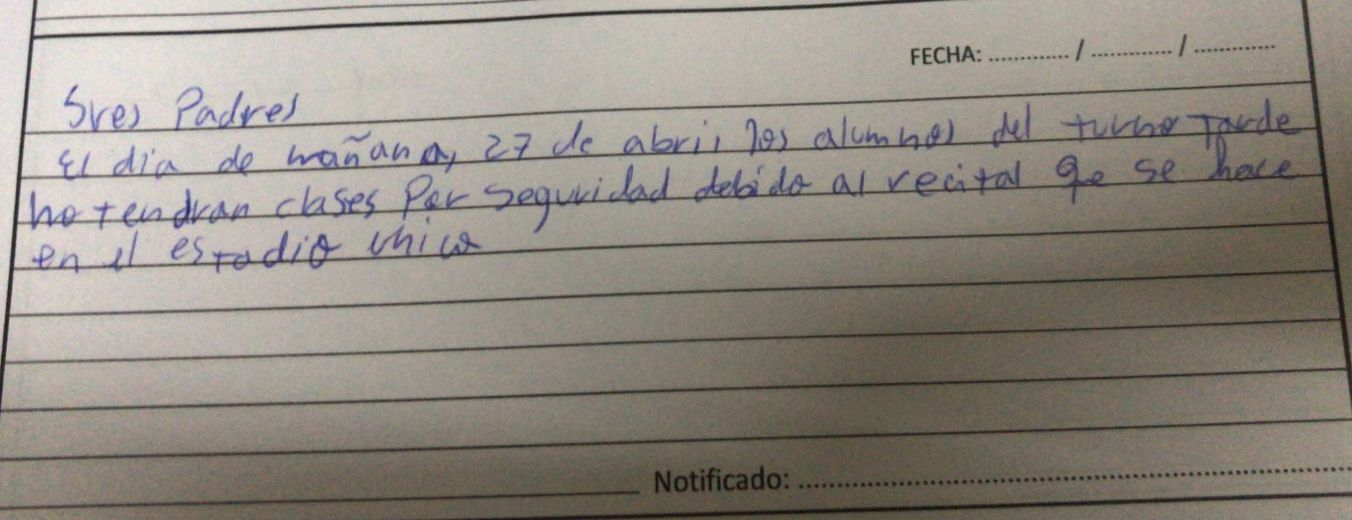 FECHA: ............. / ............. / .............
Sres Padres
El dia de mañana, 27 de abril los alumnos del turno Tarde
no tendran clases Por seguridad debido al recital qe se hace
en el estadio unico
Notificado: ...............................................................